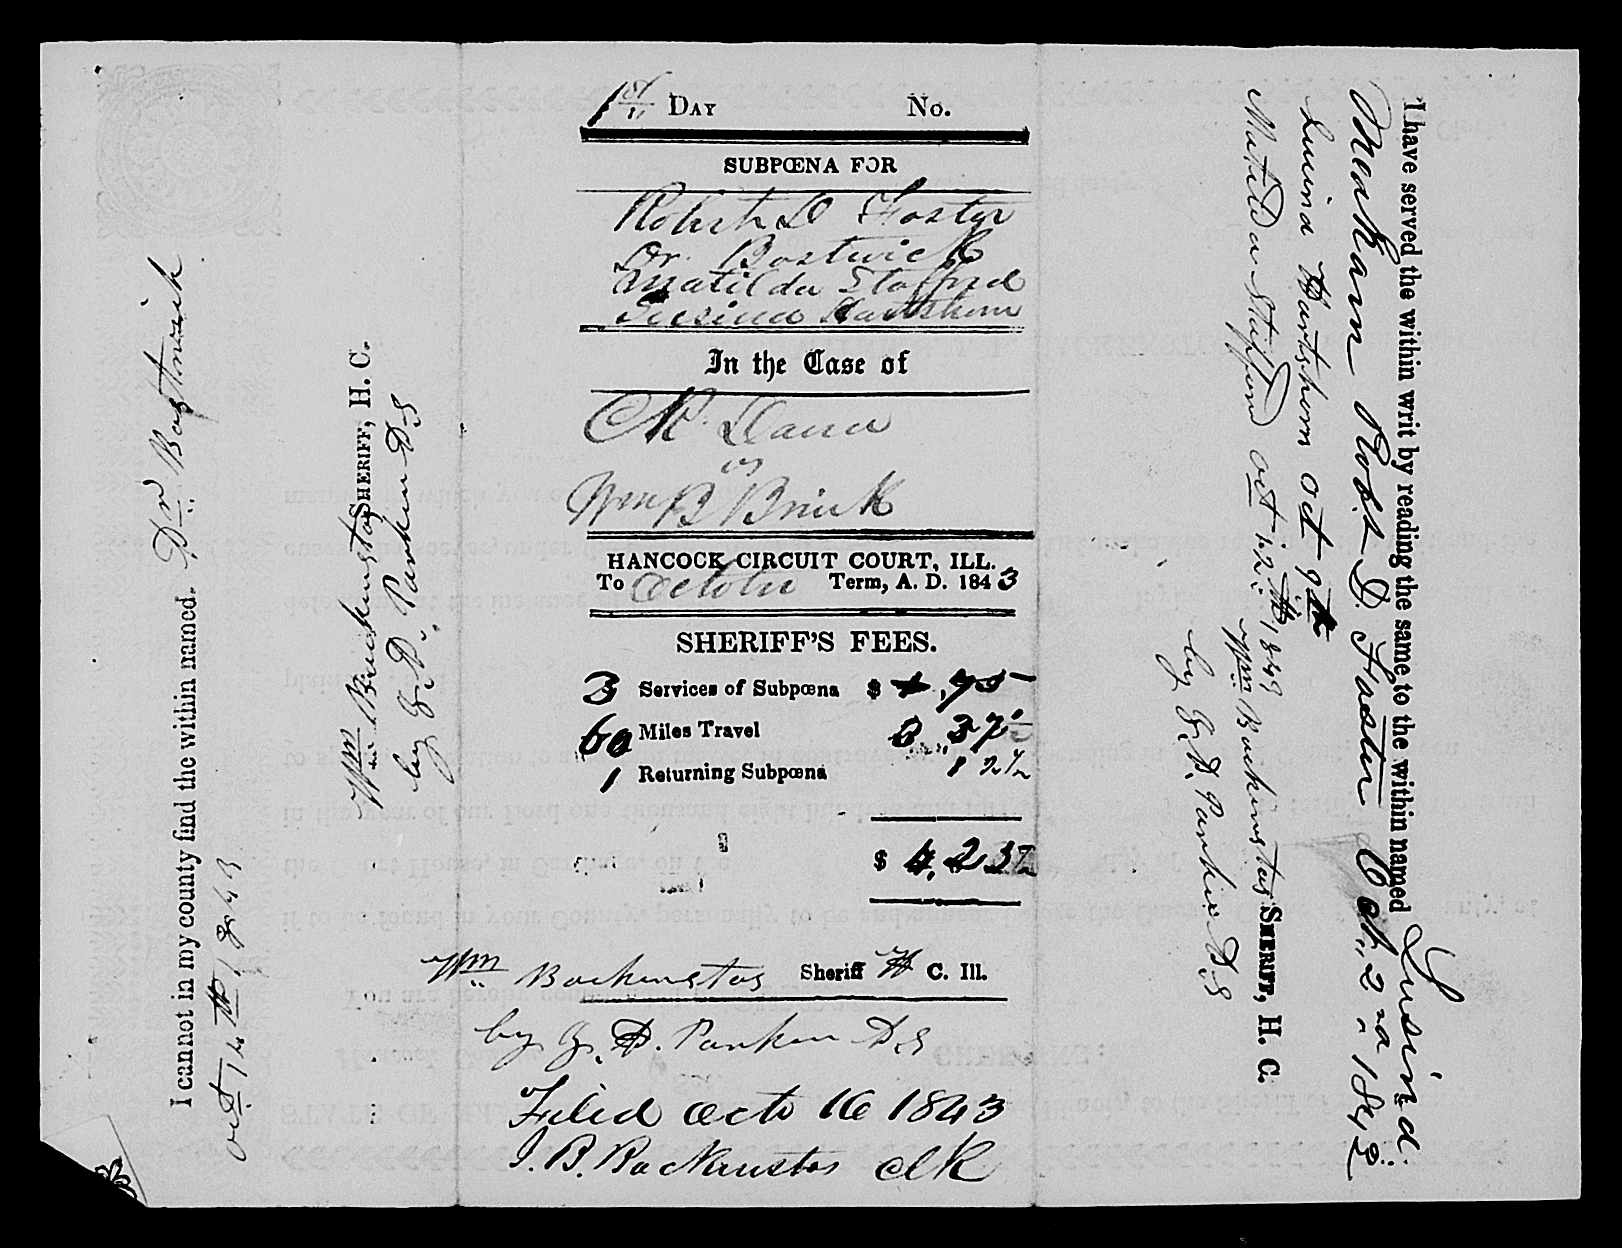 1st Day No.
SUBPŒNA FOR
Robert D Foster
Dr. Bostwick
Matilda Stafford
Lusina Hartshorn
In the Case of
C M. Dana
vs
Wm B Brink
HANCOCK CIRCUIT COURT, ILL.
To October Term, A. D. 1843
SHERIFF'S FEES.
3 Services of Subpœna $ .75
60 Miles Travel 3 37½
1 Returning Subpœna 12½
$ 4.2
Wm Backenstos Sheriff H C. Ill.
by J. D. Parker D.S
Filed Octo 16 1843
J. B. Backenstos clk
I have served the within writ by reading the same to the within named Lusind.
Markam Robt D. Foster Oct. 2nd 1843
Lucina Hartshorn Oct 9th
Matilda Stafford Oct 12th 1843
Wm Backenstos SHERIFF, H. C.
by J. D. Parker D.S
Wm Backenstos SHERIFF, H. C.
by J. D. Parker D.S
I cannot in my county find the within named. Dr Bostwick
oct 14th 1843